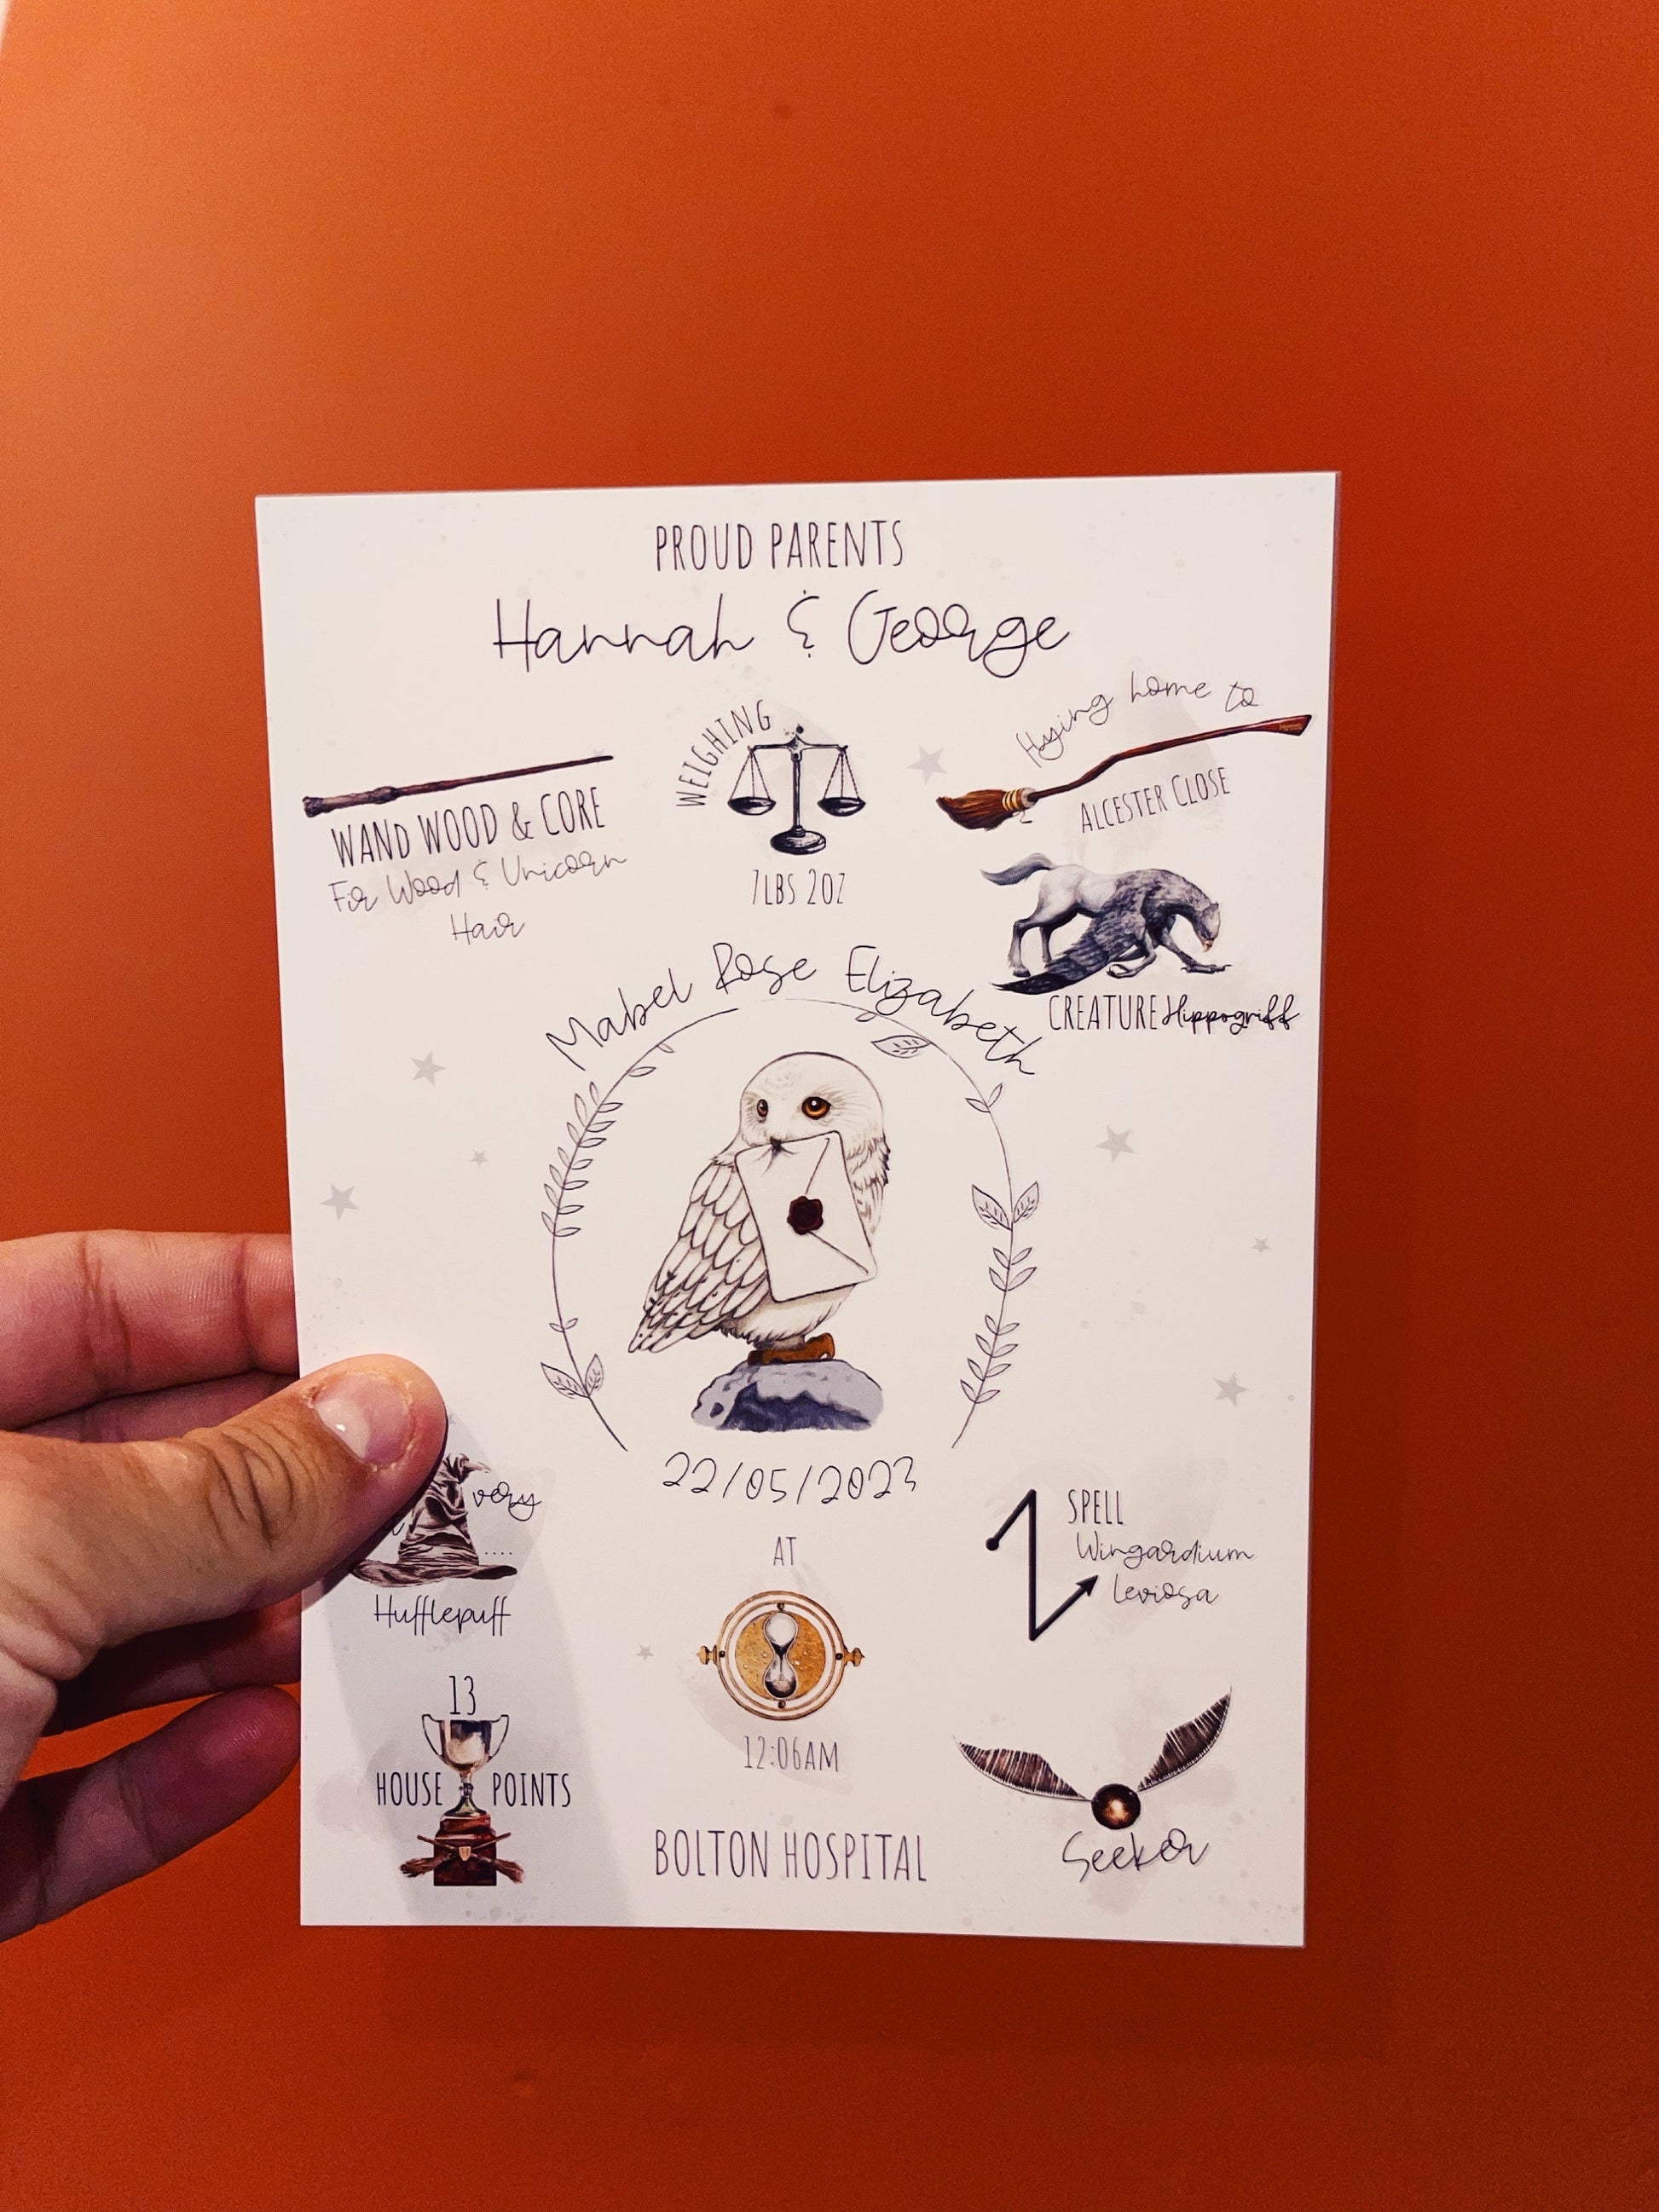 PROUD PARENTS
Hannah & George
WEIGHING
7LBS 2OZ
flying home to
ALCESTER CLOSE
WAND WOOD & CORE
Fir Wood & Unicorn
Hair
CREATURE Hippogriff
Mabel Rose Elizabeth
22/05/2023
AT
12:06AM
BOLTON HOSPITAL
very
....
Hufflepuff
13
HOUSE POINTS
SPELL
Wingardium
Leviosa
Seeker